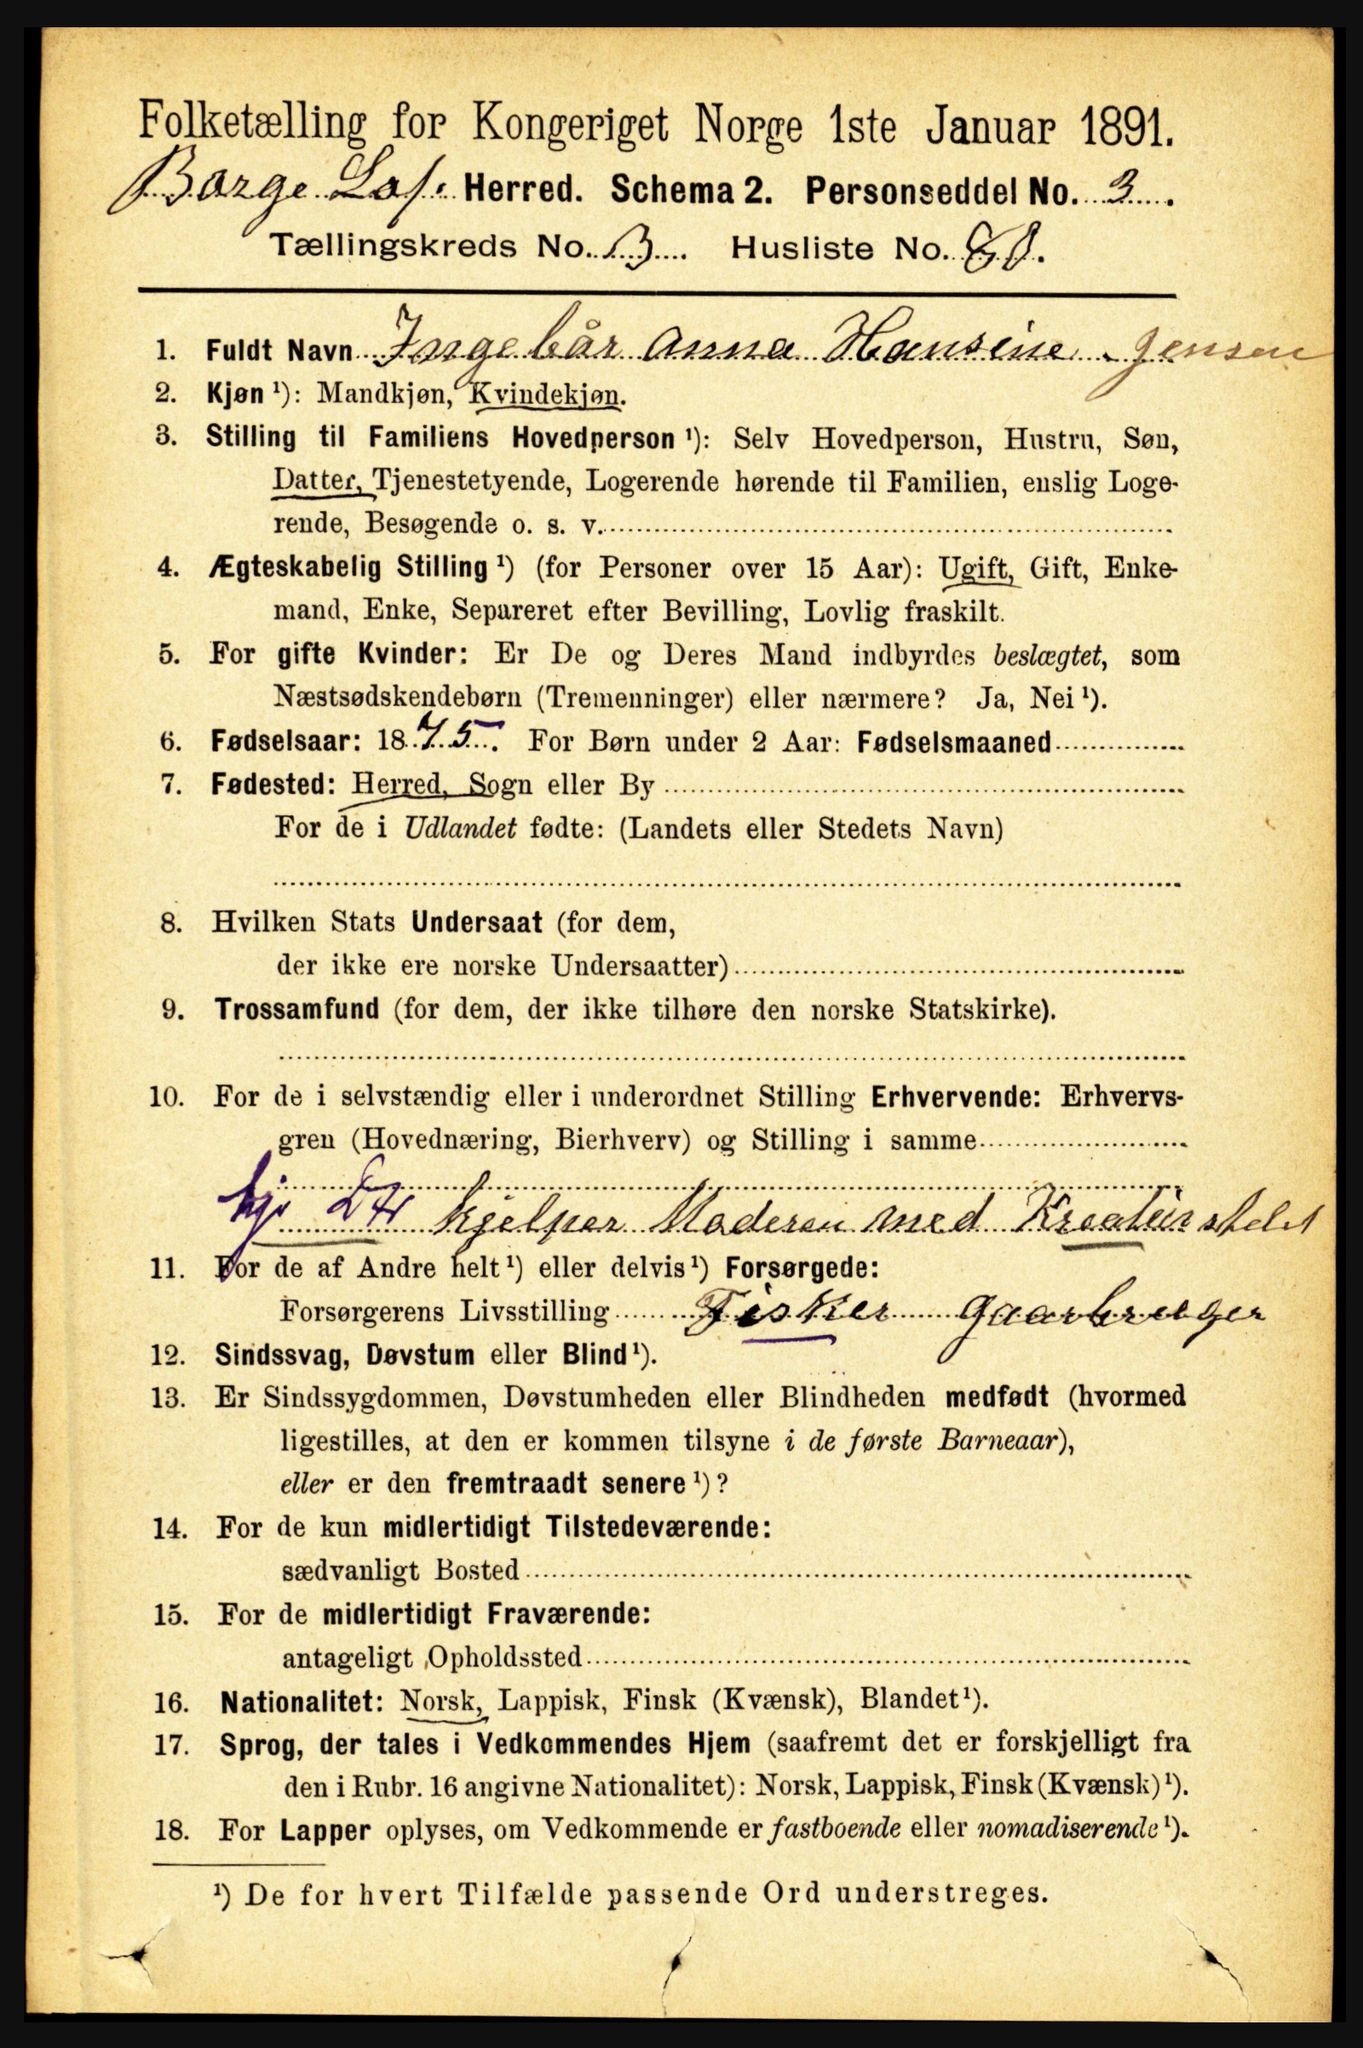 Folketælling for Kongeriget Norge 1ste Januar 1891.
Borge Lof. Herred. Schema 2. Personseddel No. 3.
Tællingskreds No. 3. Husliste No. 80.
1. Fuldt Navn Ingebår Anna Hansine Jensen
2. Kjøn ¹): Mandkjøn, Kvindekjøn.
3. Stilling til Familiens Hovedperson ¹): Selv Hovedperson, Hustru, Søn,
Datter, Tjenestetyende, Logerende hørende til Familien, enslig Loge-
rende, Besøgende o. s. v.
4. Ægteskabelig Stilling ¹) (for Personer over 15 Aar): Ugift, Gift, Enke-
mand, Enke, Separeret efter Bevilling, Lovlig fraskilt.
5. For gifte Kvinder: Er De og Deres Mand indbyrdes beslægtet, som
Næstsødskendebørn (Tremenninger) eller nærmere? Ja, Nei ¹).
6. Fødselsaar: 1875. For Børn under 2 Aar: Fødselsmaaned
7. Fødested: Herred, Sogn eller By
For de i Udlandet fødte: (Landets eller Stedets Navn)
8. Hvilken Stats Undersaat (for dem,
der ikke ere norske Undersaatter)
9. Trossamfund (for dem, der ikke tilhøre den norske Statskirke).
10. For de i selvstændig eller i underordnet Stilling Erhvervende: Erhvervs-
gren (Hovednæring, Bierhverv) og Stilling i samme
hjelper Moderen med Kreaturstelet
11. For de af Andre helt ¹) eller delvis ¹) Forsørgede:
Forsørgerens Livsstilling Fisker Gaarbruger
12. Sindssvag, Døvstum eller Blind ¹).
13. Er Sindssygdommen, Døvstumheden eller Blindheden medfødt (hvormed
ligestilles, at den er kommen tilsyne i de første Barneaar),
eller er den fremtraadt senere ¹)?
14. For de kun midlertidigt Tilstedeværende:
sædvanligt Bosted
15. For de midlertidigt Fraværende:
antageligt Opholdssted
16. Nationalitet: Norsk, Lappisk, Finsk (Kvænsk), Blandet ¹).
17. Sprog, der tales i Vedkommendes Hjem (saafremt det er forskjelligt fra
den i Rubr. 16 angivne Nationalitet): Norsk, Lappisk, Finsk (Kvænsk) ¹).
18. For Lapper oplyses, om Vedkommende er fastboende eller nomadiserende ¹).
¹) De for hvert Tilfælde passende Ord understreges.